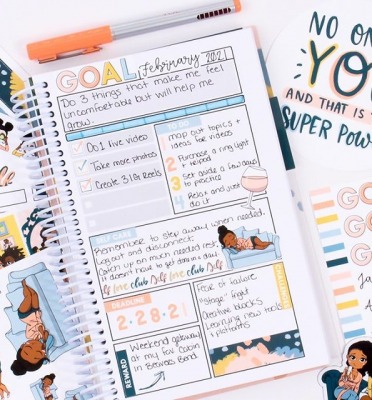 GOAL February 2021
Do 3 things that make me feel
uncomfortable but will help me
grow.
Do 1 live video
Take more photos
Create 3 IG Reels
TO DO
1 map out topics +
ideas for videos
2 Purchase a ring light
+ tripod
3 Set aside a few days
to practice
4 Relax and just
do it
SELF CARE
Remember to step away when needed.
Log out and disconnect.
Catch up on much needed rest.
It doesn't have to get done in a day.
Self love club Self love club Self
DEADLINE
2·28·21
REWARD
Weekend getaway
at my fav Cabin
in Beavers Bend!
Fear of failure
"Stage" fright
Creative blocks
Learning new tools
+ platforms
NO ON
YOU
AND THAT IS
SUPER POW
GO
GO
GO